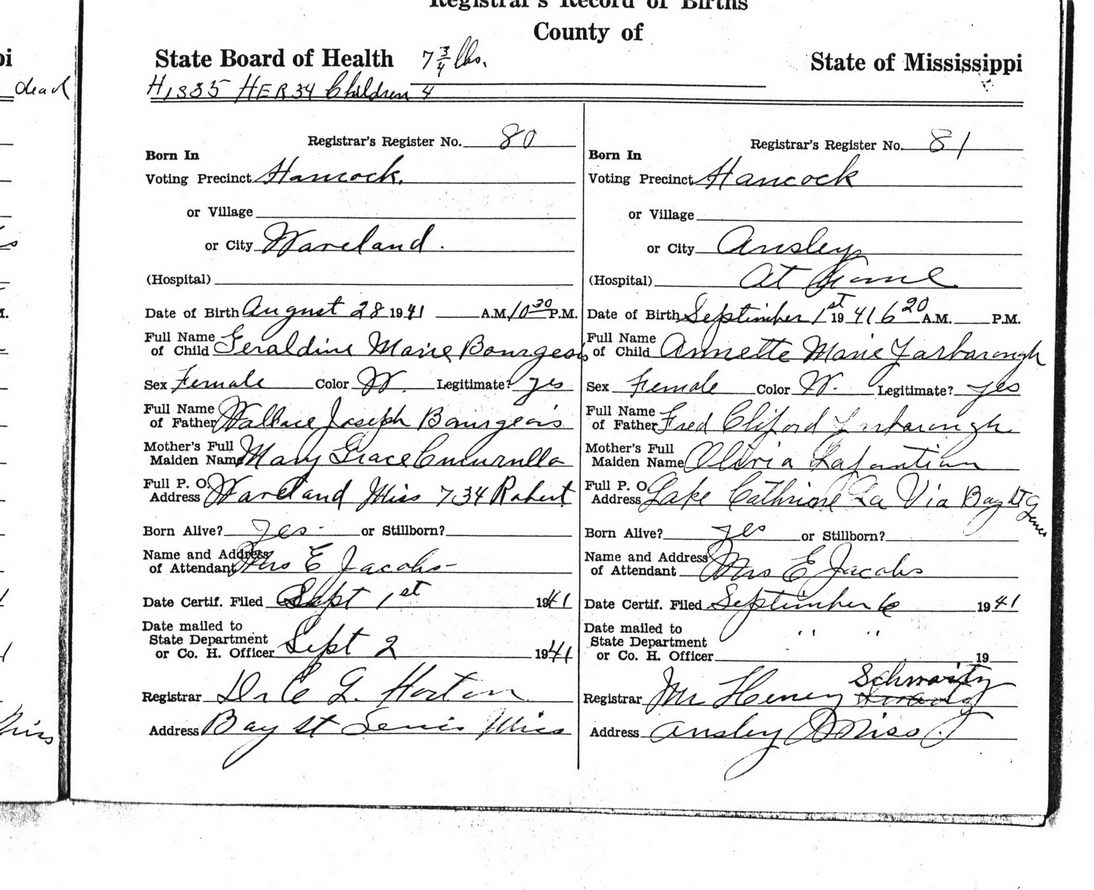 Registrar's Record of Births
County of
State Board of Health 7 3/4 lbs. State of Mississippi
His 35 HER 34 Children 4
dead
Registrar's Register No. 80
Born In
Voting Precinct Hancock.
or Village
or City Waveland.
(Hospital)
Date of Birth August 28 1941 A.M. 10 30 P.M.
Full Name
of Child Geraldine Marie Bourgeois
Sex Female Color W. Legitimate? yes
Full Name
of Father Wallace Joseph Bourgeois
Mother's Full
Maiden Name Mary Grace Cucurullo
Full P. O.
Address Waveland Miss 734 Robert
Born Alive? yes - or Stillborn?
Name and Address
of Attendant Mrs E Jacobs -
Date Certif. Filed Sept 1st 1941
Date mailed to
State Department
or Co. H. Officer Sept 2 1941
Registrar Dr C L Horton
Address Bay St Louis Miss
Registrar's Register No. 81
Born In
Voting Precinct Hancock
or Village
or City Ansley
(Hospital) At Home
Date of Birth September 1st 1941 6 20 A.M. P.M.
Full Name
of Child Annette Marie Yarbarough
Sex Female Color W. Legitimate? yes
Full Name
of Father Fred Cliford Yarbarough
Mother's Full
Maiden Name Olivia
Full P. O.
Address Lake Cathrine La Via Bay St
Born Alive? yes or Stillborn?
Name and Address
of Attendant Mrs E Jacobs
Date Certif. Filed September 6 1941
Date mailed to
State Department
or Co. H. Officer " " 19
Schwartz
Registrar Mr Heney
Address Ansley Miss.